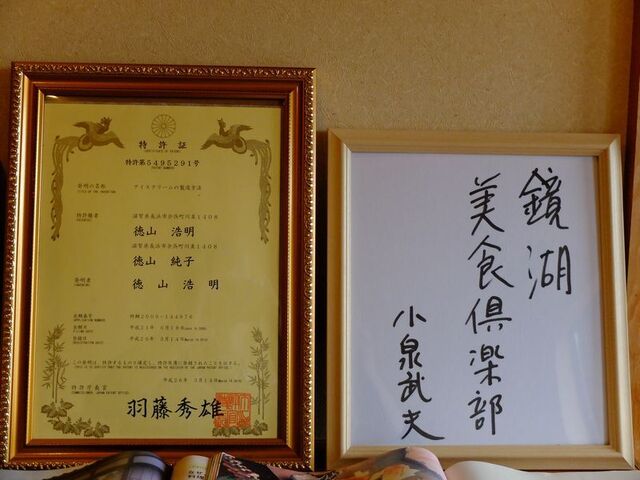 特許証
CERTIFICATE OF PATENT
特許第5495291号
PATENT NUMBER
発明の名称 アイスクリームの製造方法
TITLE OF THE INVENTION
特許権者 滋賀県長浜市余呉町川並1408
PATENTEE
徳山 浩明
滋賀県長浜市余呉町川並1408
徳山 純子
発明者 徳山 浩明
INVENTOR
出願番号 特願2009-144976
APPLICATION NUMBER
出願日
FILING DATE
登録日 平成26年 3月14日
REGISTRATION DATE
この発明は、特許するものと確定し、特許原簿に登録されたことを証する。
THIS IS TO CERTIFY THAT THE PATENT IS REGISTERED ON THE REGISTER OF THE JAPAN PATENT OFFICE.
平成26年 3月14日
特許庁長官
COMMISSIONER, JAPAN PATENT OFFICE
羽藤秀雄
鏡湖
美食倶楽部
小泉武夫